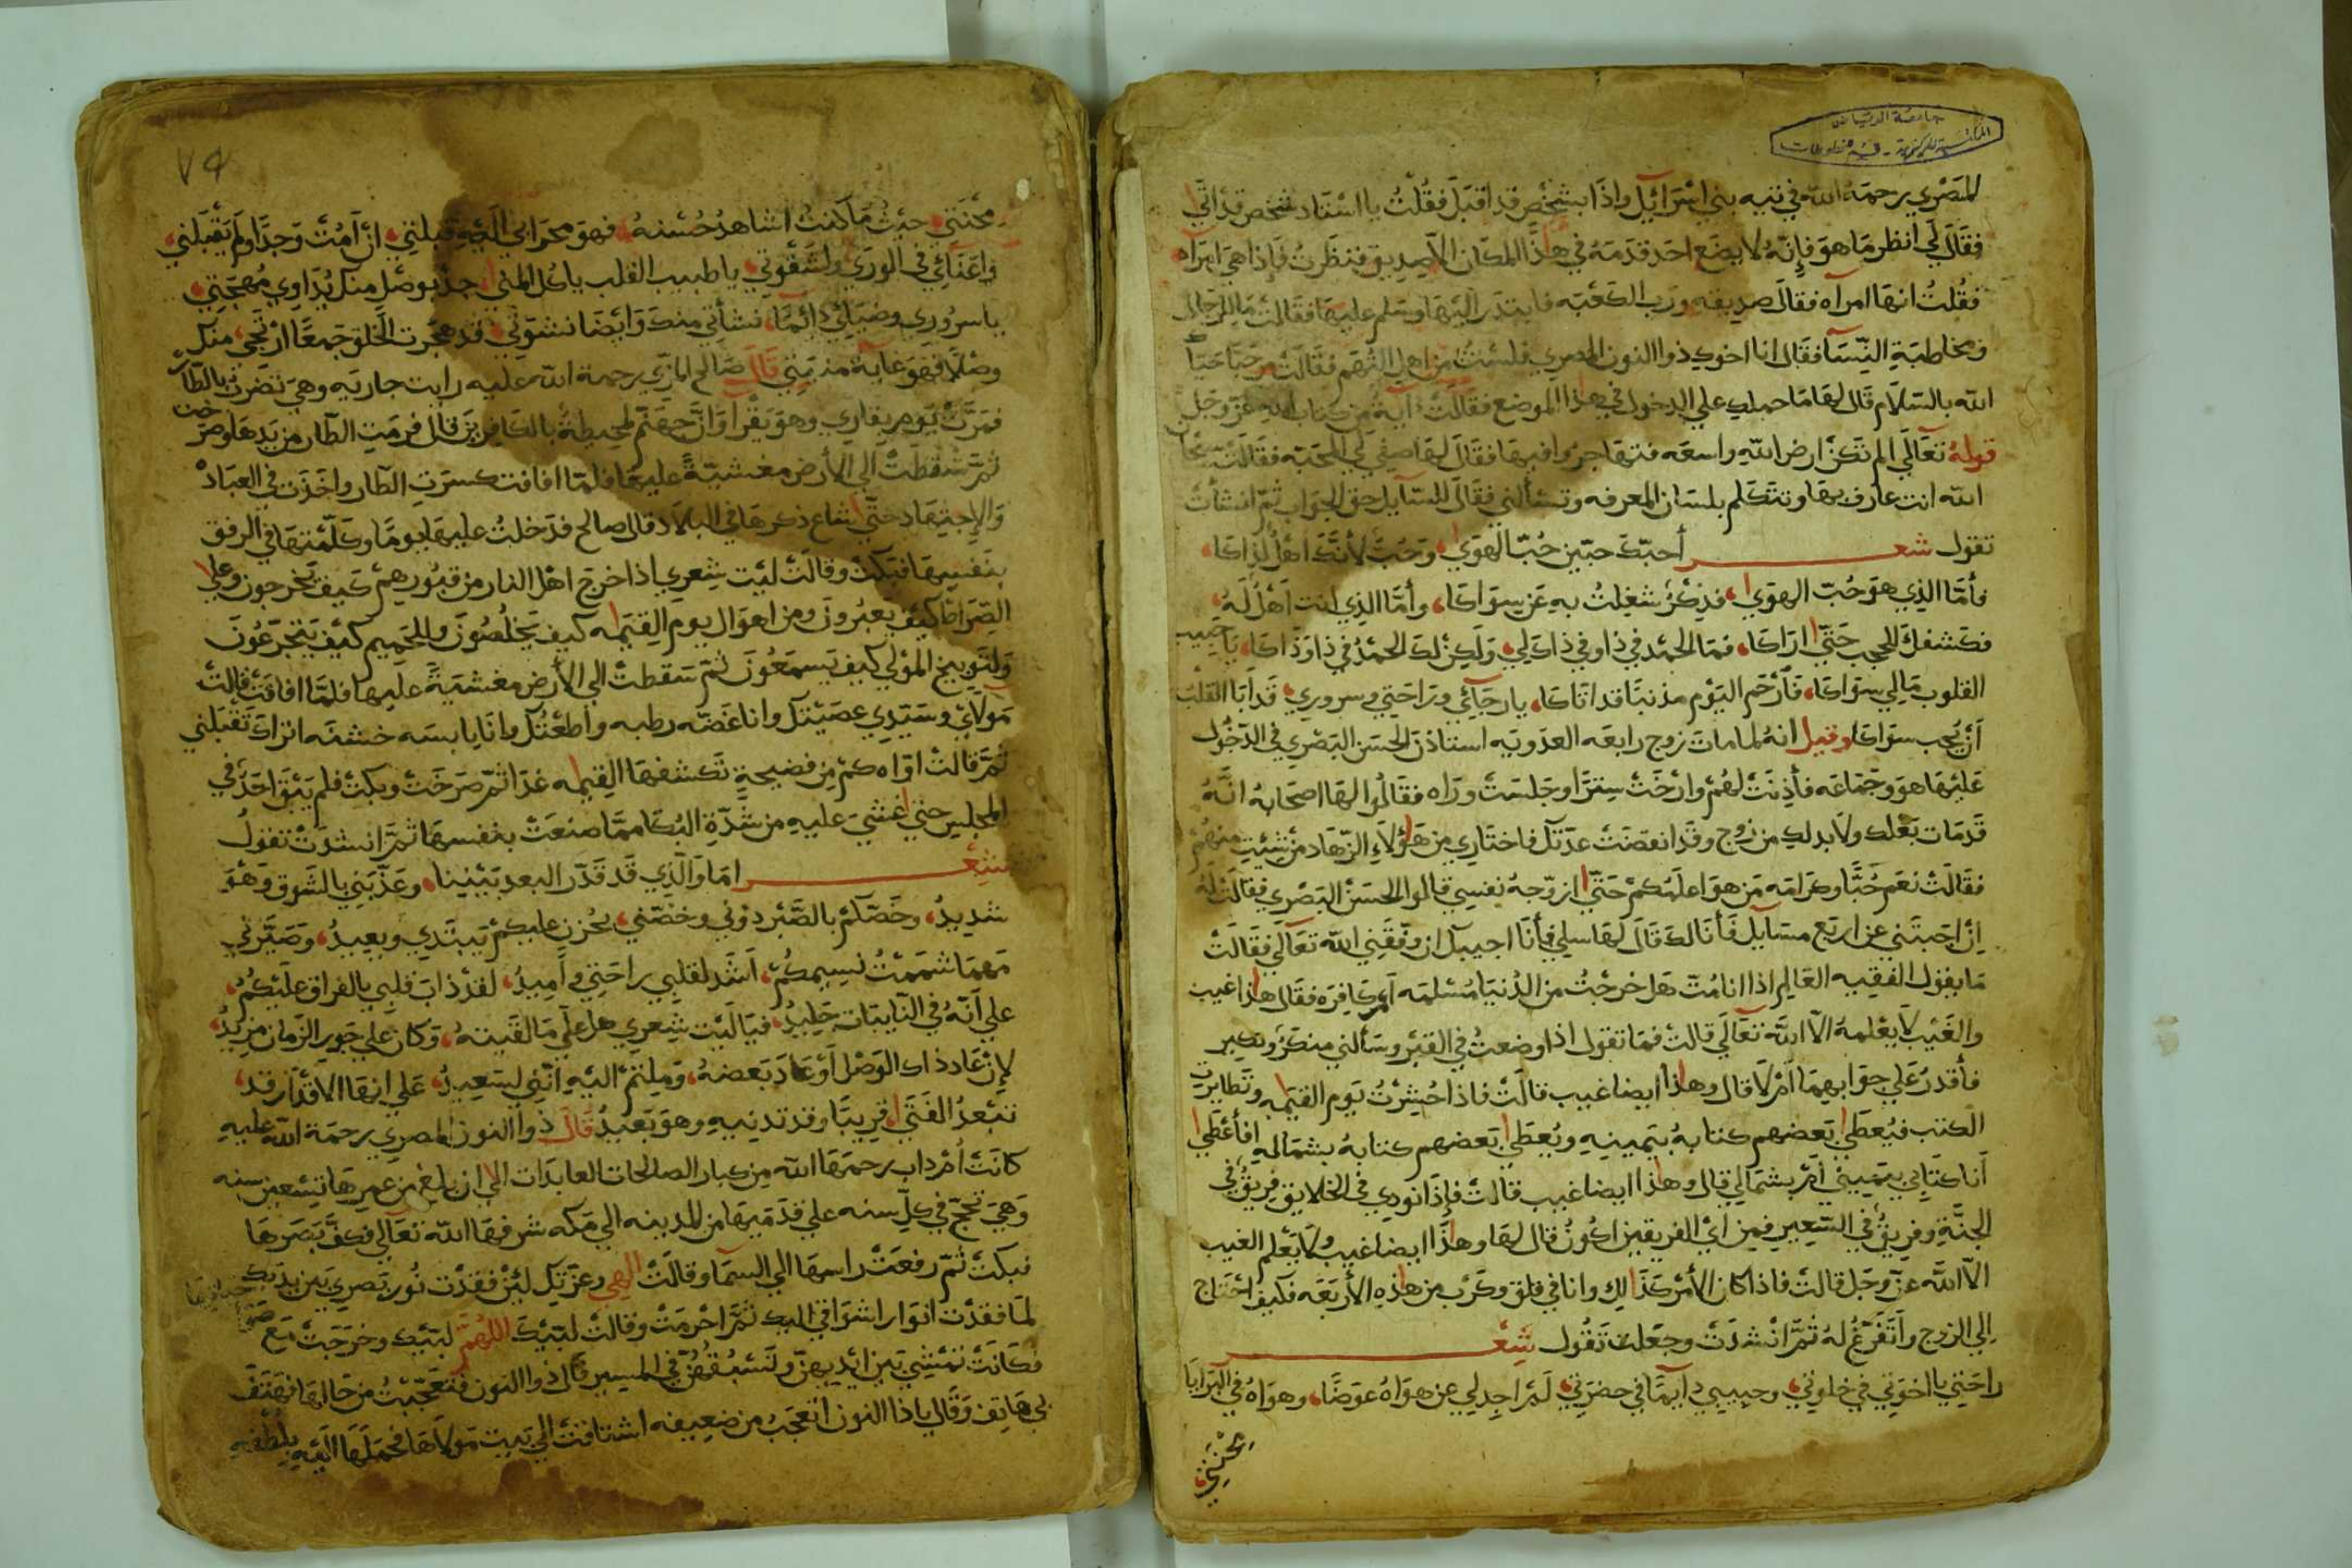 جامعة الرياض
المكتبة المركزية - قسم المخطوطات
المصري رحمة الله في تيه بني اسرائيل واذا بشخص قد اقبل فقلت يا استاد شخص قد اتي
فقال لي انظر ما هو فإنه لا يضع احد قدمه في هذا المكان الا صديق فنظرت فإذا هي امراه
فقلت انها امراه فقال صديقه ورب الكعبه فابتدر اليها وسلم عليها فقالت ما للرجال
ومخاطبة النسآ فقال انا اخوك ذوا النون المصري فلست من اهل التهم فقالت مرحبا حياك
الله بالسلام قال لها ما حملك علي الدخول في هذا الموضع فقالت آية من كتاب الله عز وجل
قوله تعالي الم تكن ارض الله واسعه فتهاجروا فيها فقال لها صفي لي المحبه فقالت سبحان
الله انت عارف بها وتتكلم بلسان المعرفه وتسألني فقال للسآيل حق الجواب ثم انشأت
تقول شعر أحبك حبين حب الهوي، وحب لأنك اهل لذاكا،
فأما الذي هو حب الهوي، فذكر شغلت به عن سواكا، وأما الذي انت اهل له،
فكشفك للحجب حتي اراكا، فما الحمد في ذا وفي ذاك لي، ولكن لك الحمد في ذا وذاكا، يا حبيب
القلوب مالي سواكا، فأرحم اليوم مذنبا قد اتاكا، يا رجآئي وراحتي وسروري، قد أبا القلب
أن يحب سواكا وقيل انه لما مات زوج رابعه العدويه استاذن الحسن البصري في الدخول
عليها هو وجماعه فأذنت لهم وارخت سترا وجلست وراه فقالوا لها اصحابه انه
قد مات بعلك ولا بد لك من زوج وقد انقضت عدتك فاختاري من هؤلاء الزهاد من شئت منهم
فقالت نعم حبا وكرامه من هو اعلمكم حتي ازوجه نفسي قالوا الحسن البصري فقالت له
إن اجبتني عن اربع مسآيل فأنا لك قال لها سلي فأنا اجيبك ان وفقني الله تعالي فقالت
ما يقول الفقيه العالم اذا انا مت هل خرجت من الدنيا مسلمه أم كافره فقال هذا غيب
والغيب لا يعلمه الا الله تعالي قالت فما تقول اذا وضعت في القبر وسألني منكر ونكير
فأقدر علي جوابهما أم لا قال وهذا ايضا غيب قالت فاذا حشرت يوم القيمه وتطايرت
الكتب فيعطي بعضهم كتابه بيمينه ويعطي بعضهم كتابه بشماله افأعطي
أنا كتابي بيميني أم بشمالي قال وهذا ايضا غيب قالت فإذا نودي في الخلايق فريق في
الجنة وفريق في السعير فمن اي الفريقين اكون قال لها وهذا ايضا غيب ولا يعلم الغيب
الا الله عز وجل قالت فاذا كان الأمر كذالك وانا في قلق وكرب من هذه الأربعه فكيف احتاج
إلي الزوج وأتفرغ له ثم انشدت وجعلت تقول شعر
راحتي يا اخوتي في خلوتي، وحبيبي دآيما في حضرتي، لم اجد لي عن هواه عوضا، وهواه في البرايا
محنتي
٧٩
محنتي، حيث ما كنت اشاهد حسنه، فهو محرابي اليه قبلتي، ان امت وجدا ولم تقبلني
واعنآئي في الوري ولشقوتي، يا طبيب القلب يا كل المني، جد بوصل منك يداوي مهجتي،
يا سروري وضيائي دائما، نشأتي منك وايضا نشوتي، قد هجرت الخلق جمعا ارتجي، منك
وصلا فهو غاية منيتي قال صالح المري رحمة الله عليه رايت جاريه وهي تضرب بالطار
فمرت يوم بقاري وهو يقرا وان جهنم لمحيطة بالكافرين قال فرمت الطار من يدها وصرخت
ثم سقطت الي الأرض مغشية عليها فلما افاقت كسرت الطار واخذت في العباد
والإجتهاد حتي شاع ذكرها في البلاد قال صالح فدخلت عليها يوما وكلمتها في الرفق
بنفسها فبكت وقالت ليت شعري اذا خرج اهل النار من قبورهم كيف يخرجون وعلي
الصراط كيف يعبرون ومن اهوال يوم القيمه كيف يخلصون وللحميم كيف يتجرعون
ولتوبيخ المولي كيف يسمعون ثم سقطت الي الأرض مغشية عليها فلما افاقت قالت
مولاي وسيدي عصيتك وانا غضه رطبه واطعتك وانا يابسه خشفه اتراك تقبلني
ثم قالت اواه كم من فضيحة تكشفها القيمه غدا ثم صرخت وبكت فلم يبق احد في
المجلس حتي اغشي عليه من شدة البكا مما صنعت بنفسها ثم انشدت تقول
شعر اما والذي قد قدر البعد بيننا، وعذبني بالشوق وهو
شديد، وخصكم بالصبر دوني وخصني، بحزن عليكم يبتدي ويعيد، وصيرني
مهما شممت نسيمكم، اشد لقلبي راحتي واميد، لقد ذاب قلبي بالفراق عليكم،
علي أنه في النايبات جليد، فيا ليت شعري هل علي ما لقيته، وكان علي جور الزمان مزيد،
لإن عاد ذاك الوصل أو عاد بعضه، وملتم اليه انني لسعيد، علي انها الاقدار قد،
تبعد الفتي، قريبا وقد تدنيه وهو بعيد قال ذوا النون المصري رحمة الله عليه
كانت ام داب رحمها الله من كبار الصالحات العابدات الي ان بلغ من عمرها تسعين سنه
وهي تحج في كل سنه علي قدميها من المدينه الي مكه شرفها الله تعالي فكف بصرها
فبكت ثم رفعت راسها الي السما وقالت الهي وعزتك لئن فقدت نور بصري بين يديك
لما فقدت انوار اشواقي اليك ثم احرمت وقالت لبيك اللهم لبيك وخرجت مع
فكانت تمشي بين ايديهن وتسبقهن في المسير قال ذوا النون فتعجبت من حالها فهتف
بي هاتف وقال يا ذا النون اتعجب من ضعيفه اشتاقت الي بيت مولاها فحملها اليه بلطفه